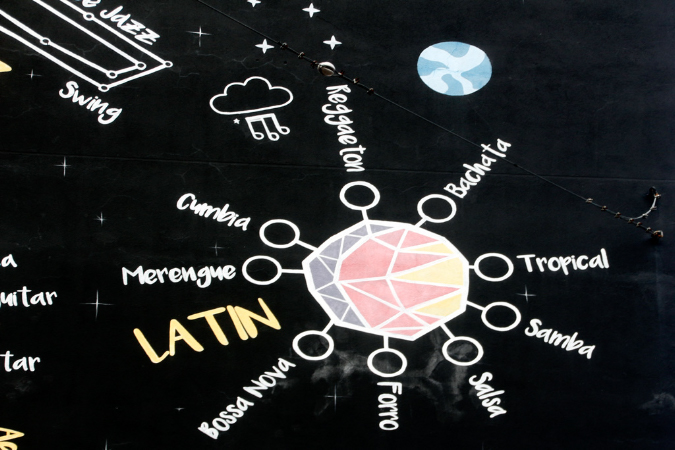 e Jazz
Swing
Reggaeton
Bachata
Cumbia
Merengue
Tropical
LATIN
Samba
Bossa Nova
Forro
Salsa
a
uitar
tar